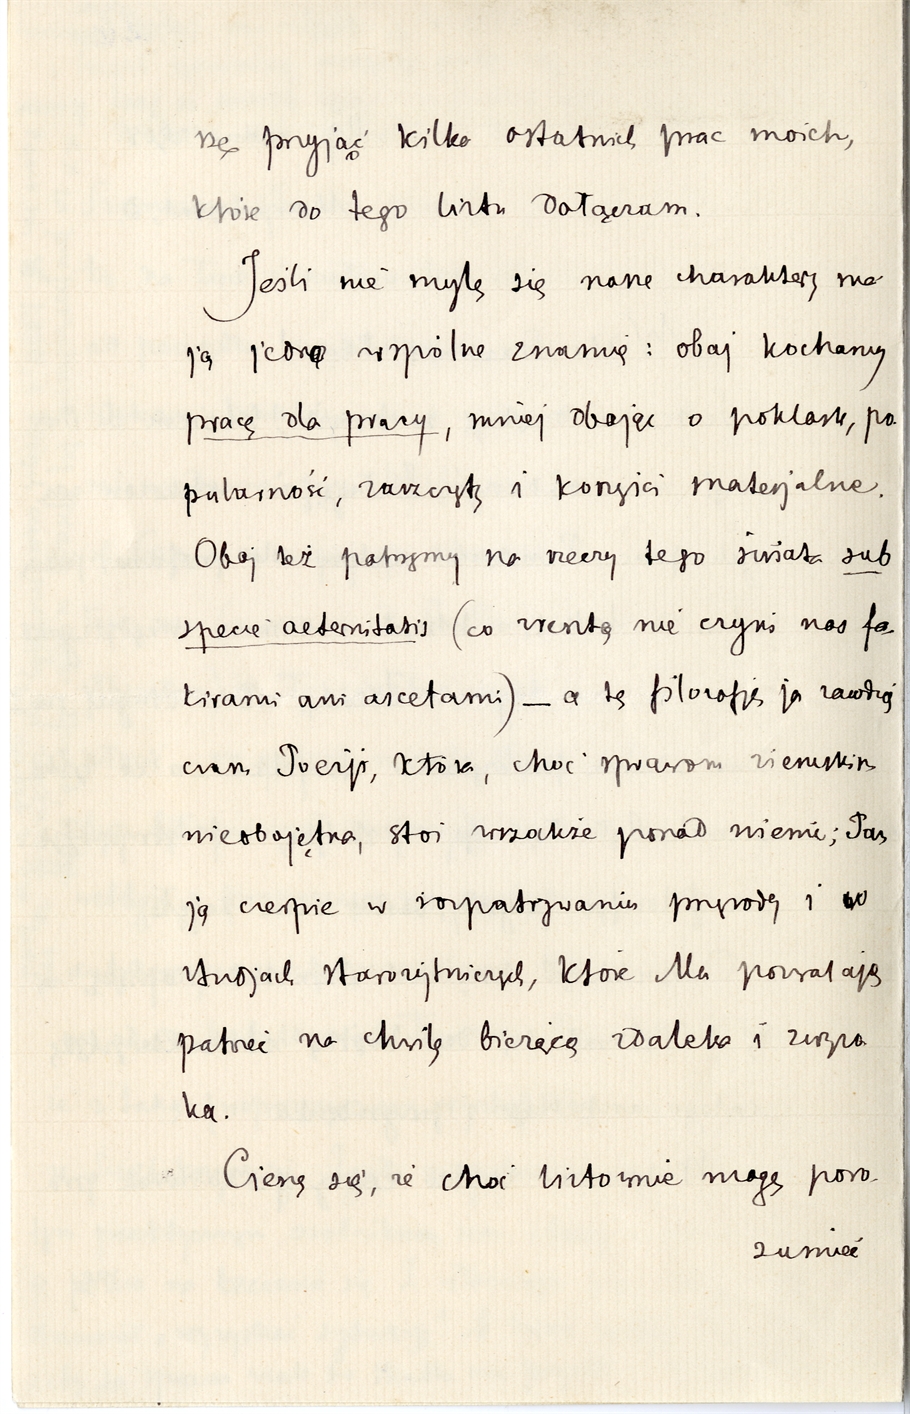 szę przyjąć kilka ostatnich prac moich,
które do tego listu dołączam.
Jeśli nie mylę się nasze charaktery ma-
ją jedno wspólne znamię: obaj kochamy
pracę dla pracy, mniej dbając o poklask, po-
pularność, zaszczyty i korzyści materjalne.
Obaj też patrzymy na rzeczy tego świata sub
specie aeternitatis (co zresztą nie czyni nas fa-
kirami ani ascetami) — a tę filozofję ja zawdzię-
czam Poezji, która, choć sprawom ziemskim
nieobojętna, stoi wszakże ponad niemi; Pan
ją czerpie w rozpatrywaniu przyrody i w
studjach starożytniczych, które Mu pozwalają
patrzeć na chwilę bieżącą zdaleka i zwyso
ka.
Cieszę się, że choć listownie mogę poro-
zumieć